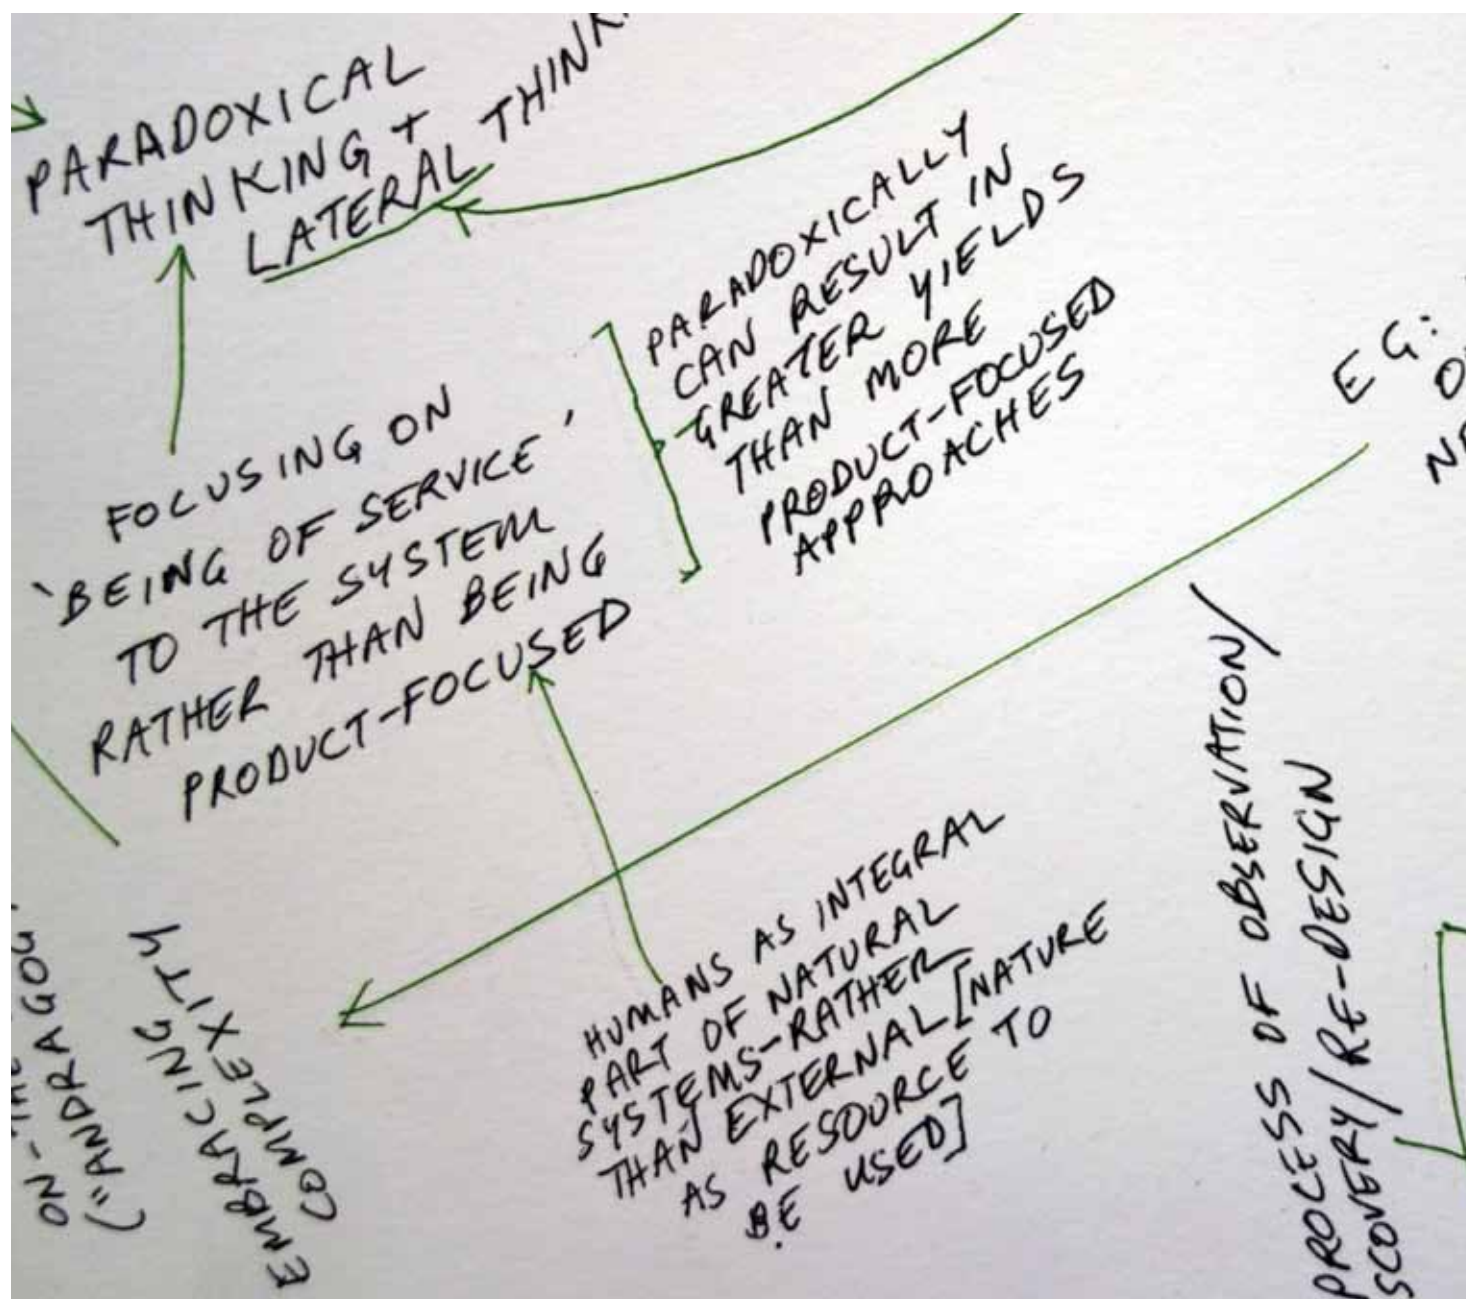 PARADOXICAL
THINKING +
LATERAL
PARADOXICALLY
CAN RESULT IN
GREATER YIELDS
THAN MORE
PRODUCT-FOCUSED
APPROACHES
EG:
FOCUSING ON
'BEING OF SERVICE'
TO THE SYSTEM
RATHER THAN BEING
PRODUCT-FOCUSED
HUMANS AS INTEGRAL
PART OF NATURAL
SYSTEMS-RATHER
THAN EXTERNAL [NATURE
AS RESOURCE TO
BE USED]
EMBRACING
COMPLEXITY
PROCESS OF OBSERVATION/
/RE-DESIGN